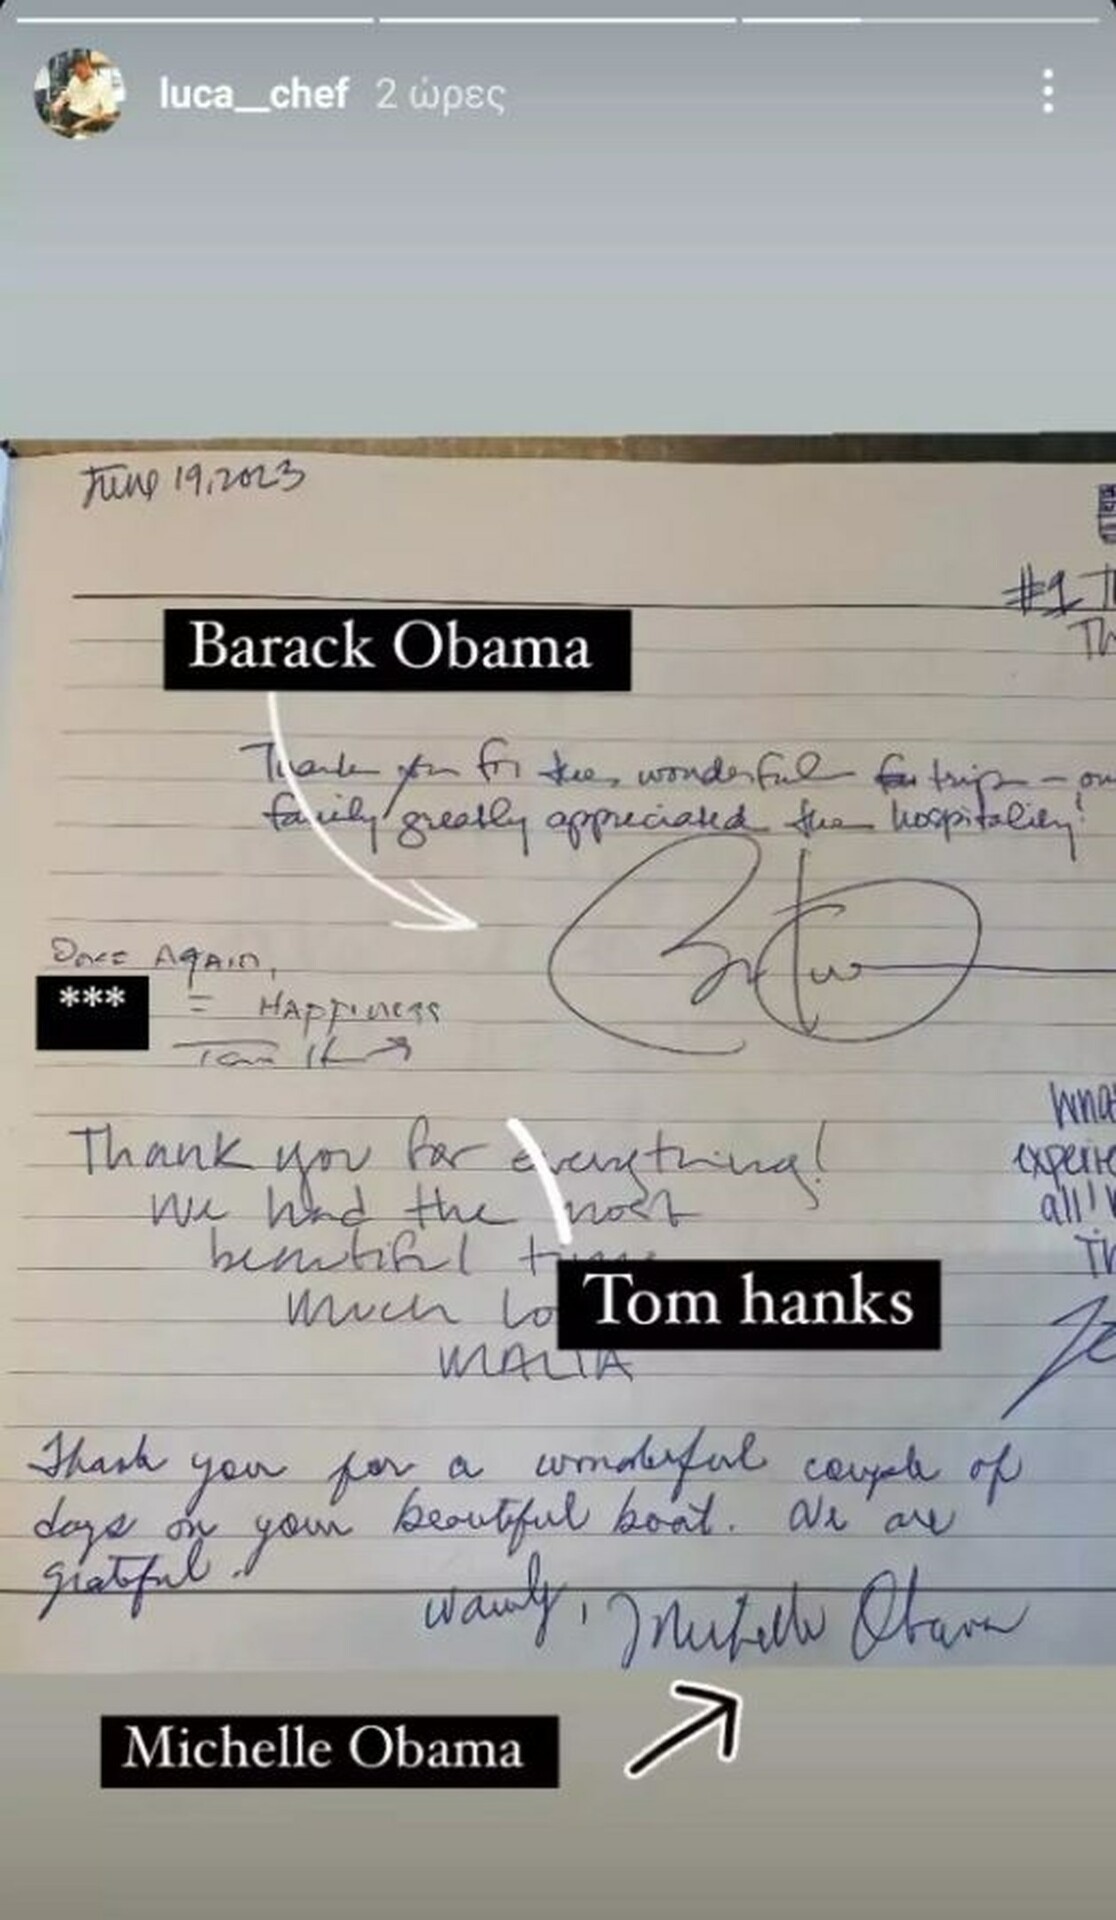 luca__chef 2 ώρες
June 19, 2023
#1
Barack Obama
Thank you for the wonderful trip - our
family greatly appreciated the hospitality!
Once Again,
*** = Happiness
What
experie
all!
Thank you for everything!
We had the most
beautiful time
Much lo
Tom hanks
MALIA
Thank you for a wonderful couple of
days on your beautiful boat. We are
grateful.
warmly, Michelle Obama
Michelle Obama